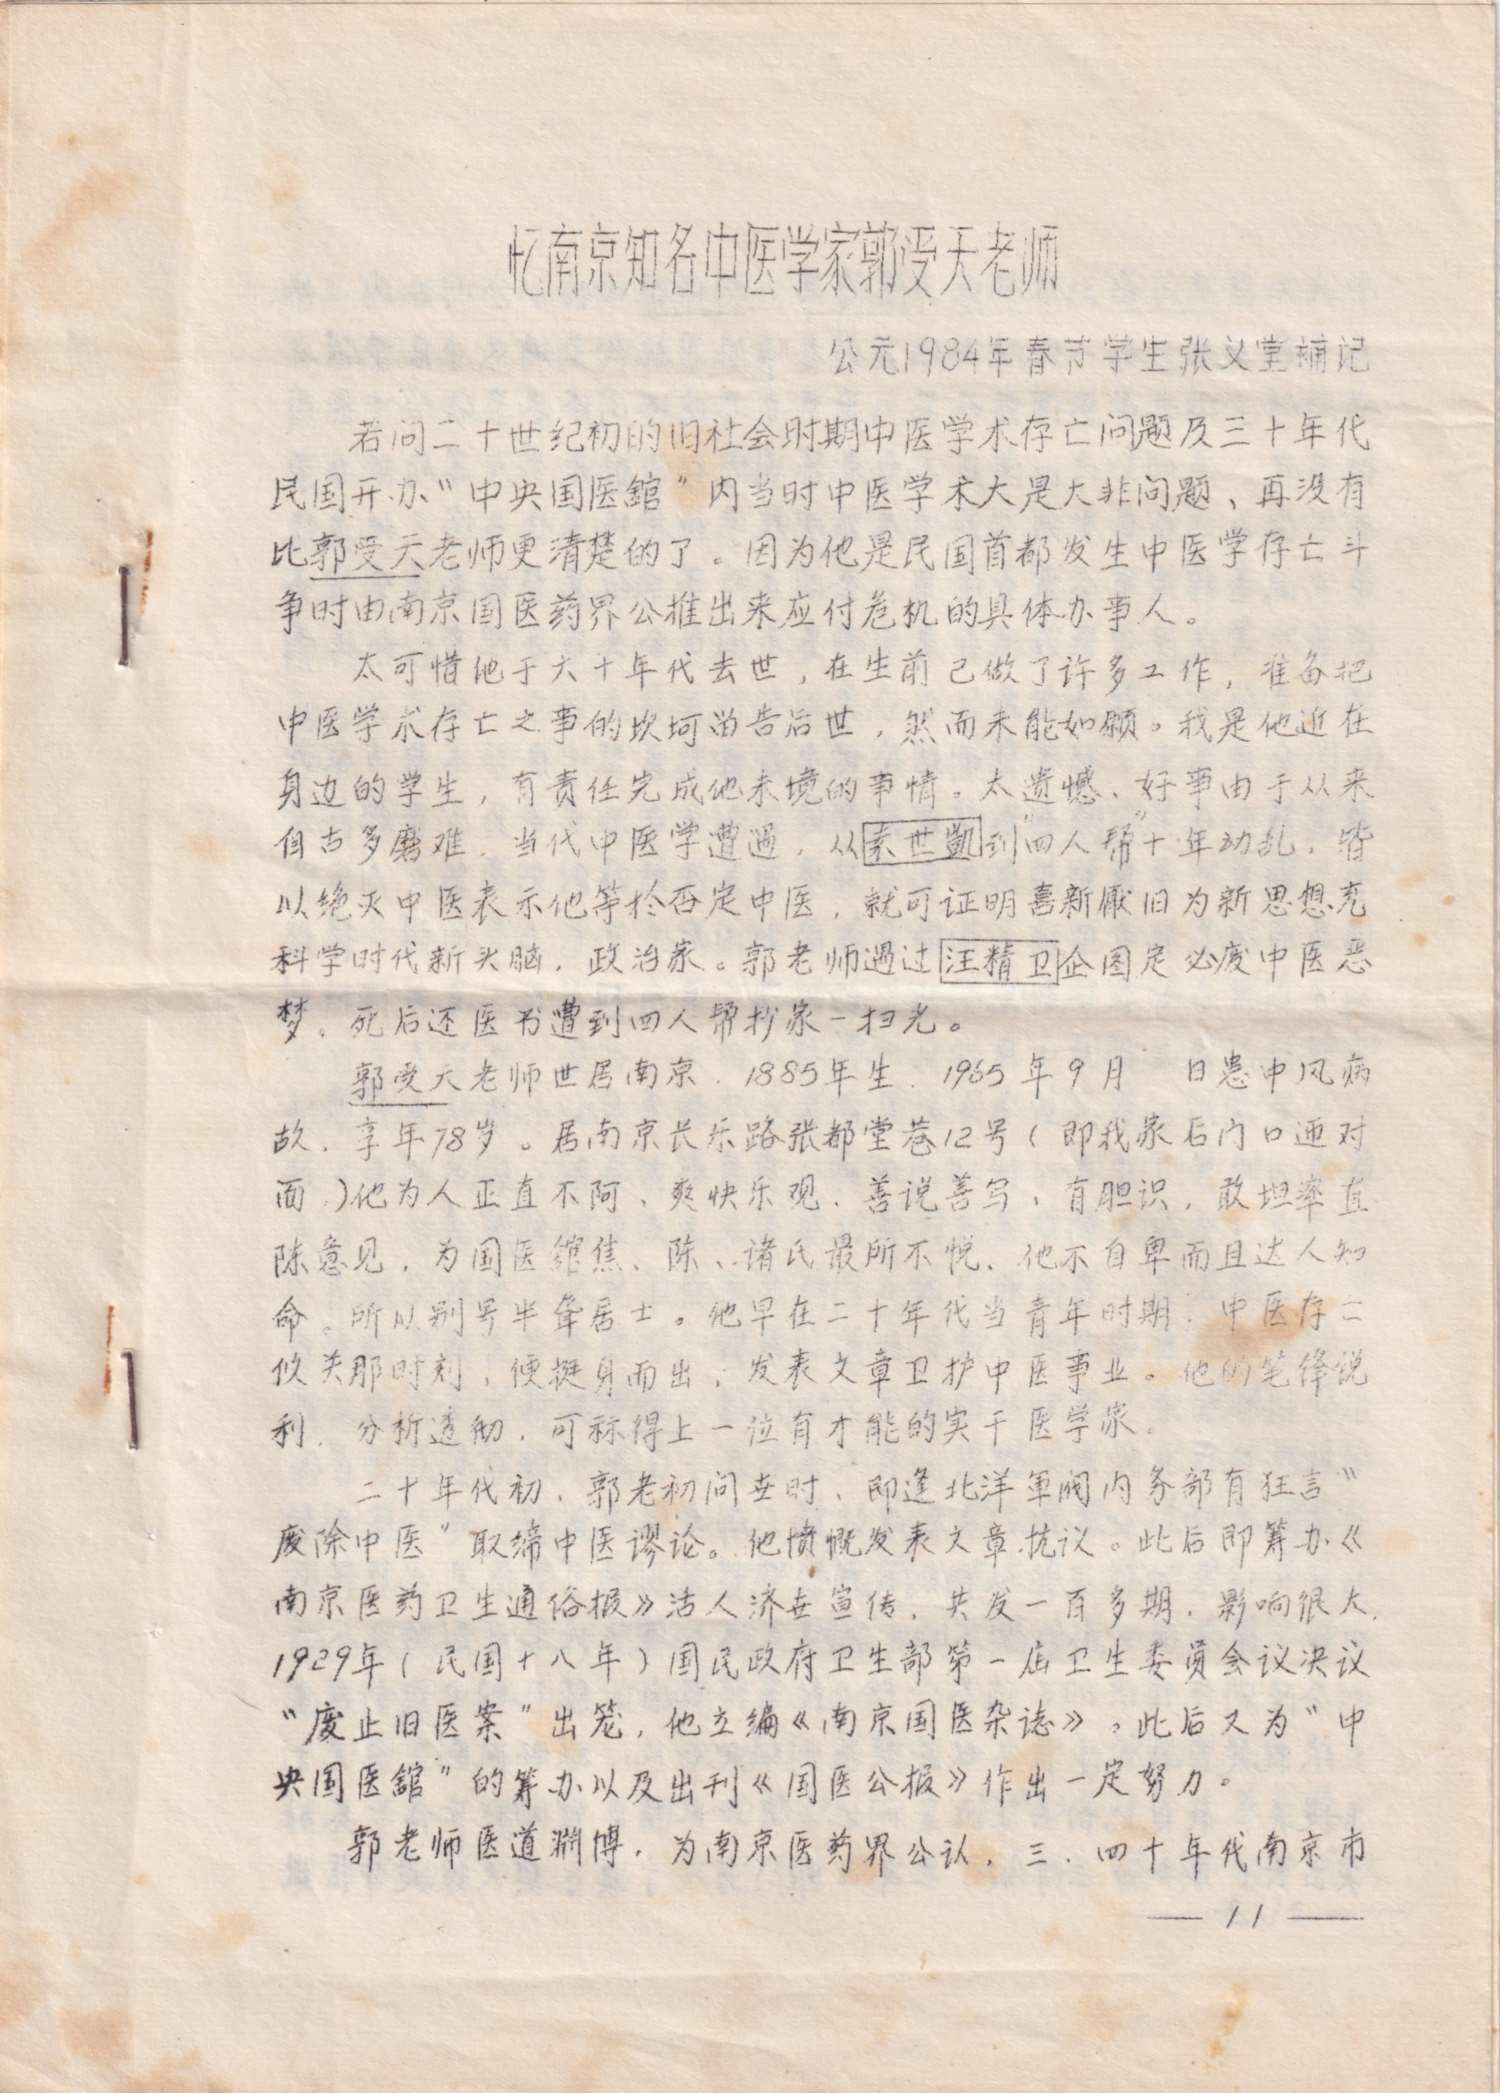 忆南京知名中医学家郭受天老师
公元1984年春节学生张义堂补记
若问二十世纪初的旧社会时期中医学术存亡问题及三十年代
民国开办“中央国医舘”内当时中医学术大是大非问题、再没有
比郭受天老师更清楚的了。因为他是民国首都发生中医学存亡斗
争时由南京国医药界公推出来应付危机的具体办事人。
太可惜他于六十年代去世，在生前已做了许多工作，准备把
中医学术存亡之事的坎坷留告后世，然而未能如願。我是他近在
身边的学生，有责任完成他未境的事情。太遗憾、好事由于从来
自古多磨难．当代中医学遭遇，从袁世凱到“四人帮”十年动乱，皆
以绝灭中医表示他等於否定中医，就可证明喜新厭旧为新思想充
科学时代新头脑，政治家。郭老师遇过汪精卫企图定必废中医恶
梦、死后还医书遭到四人帮抄家一扫光。
郭受天老师世居南京．1885年生．1965年9月 日患中风病
故．享年78岁。居南京长乐路张都堂巷12号（即我家后门口迊对
面．）他为人正直不阿、爽快乐观、善说善写，有胆识，敢坦率直
陈意见，为国医舘焦、陈、诸氏最所不悦、他不自卑而且达人知
命。所以别号半聋居士。他早在二十年代当青年时期．中医存亡
攸关那时刻，便挺身而出，发表文章卫护中医事业。他的笔锋锐
利．分析透彻．可称得上一位有才能的实干医学家．
二十年代初．郭老初问世时、即逢北洋軍阀内务部有狂言“
废除中医”取缔中医谬论。他愤慨发表文章抗议。此后即筹办《
南京医药卫生通俗报》活人济世宣传，共发一百多期．影响很大．
1929年（民国十八年）国民政府卫生部第一届卫生委员会议决议
“废止旧医案”出笼，他立编《南京国医杂誌》，此后又为“中
央国医舘”的筹办以及出刊《国医公报》作出一定努力。
郭老师医道渊博，为南京医药界公认，三．四十年代南京市
— 11 —